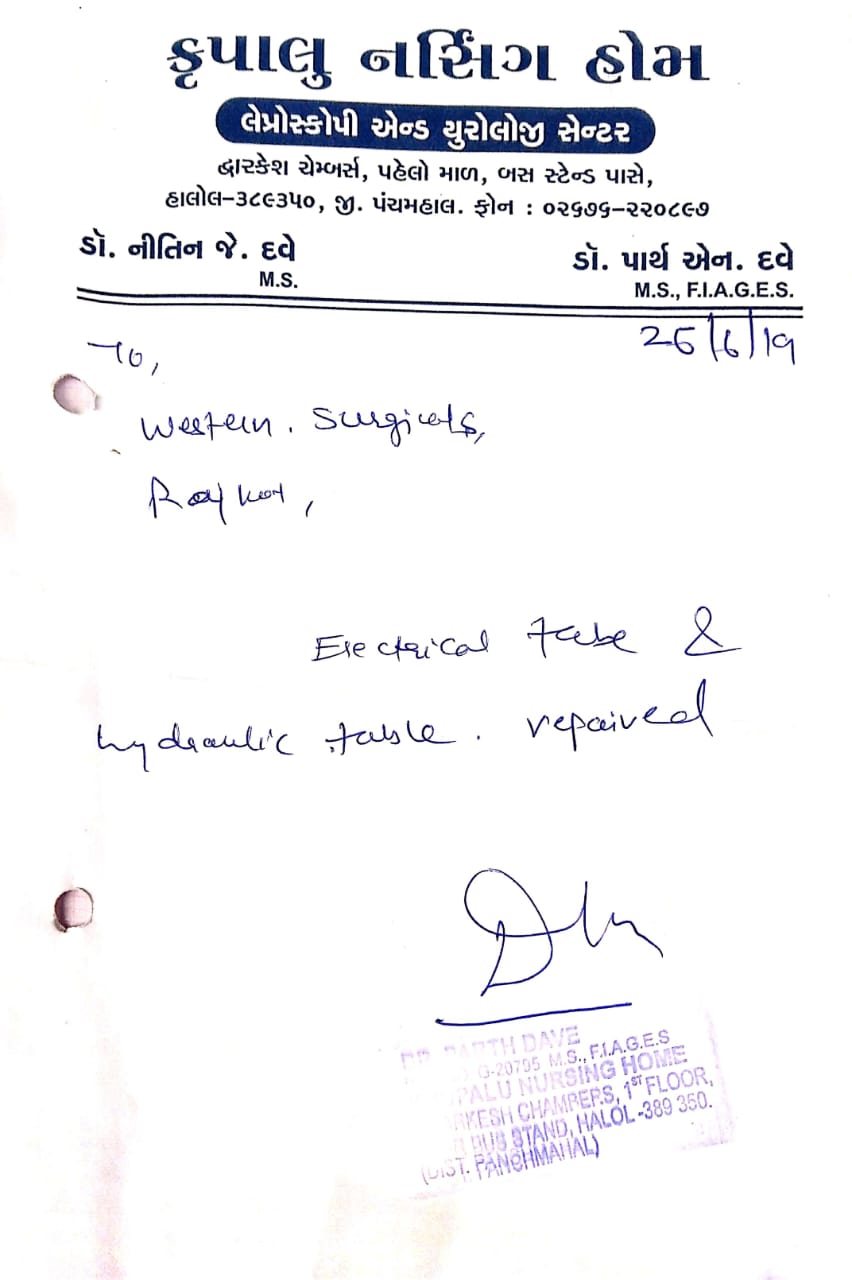 કૃપાલુ નર્સિંગ હોમ
લેપ્રોસ્કોપી એન્ડ યુરોલોજી સેન્ટર
દ્વારકેશ ચેમ્બર્સ, પહેલો માળ, બસ સ્ટેન્ડ પાસે,
હાલોલ-૩૮૯૩૫૦, જી. પંચમહાલ. ફોન : ૦૨૬૭૬-૨૨૦૮૯૭
ડૉ. નીતિન જે. દવે
M.S.
ડૉ. પાર્થ એન. દવે
M.S., F.I.A.G.E.S.
26/6/19
To,
Western. Surgicals,
Rajkot,
Electrical table &
hydraulic table. repaired
PARTH DAVE
G-20795 M.S., F.I.A.G.E.S
PALU NURSING HOME
RKESH CHAMBERS, 1ST FLOOR,
BUS STAND, HALOL-389 350.
(DIST. PANCHMAHAL)